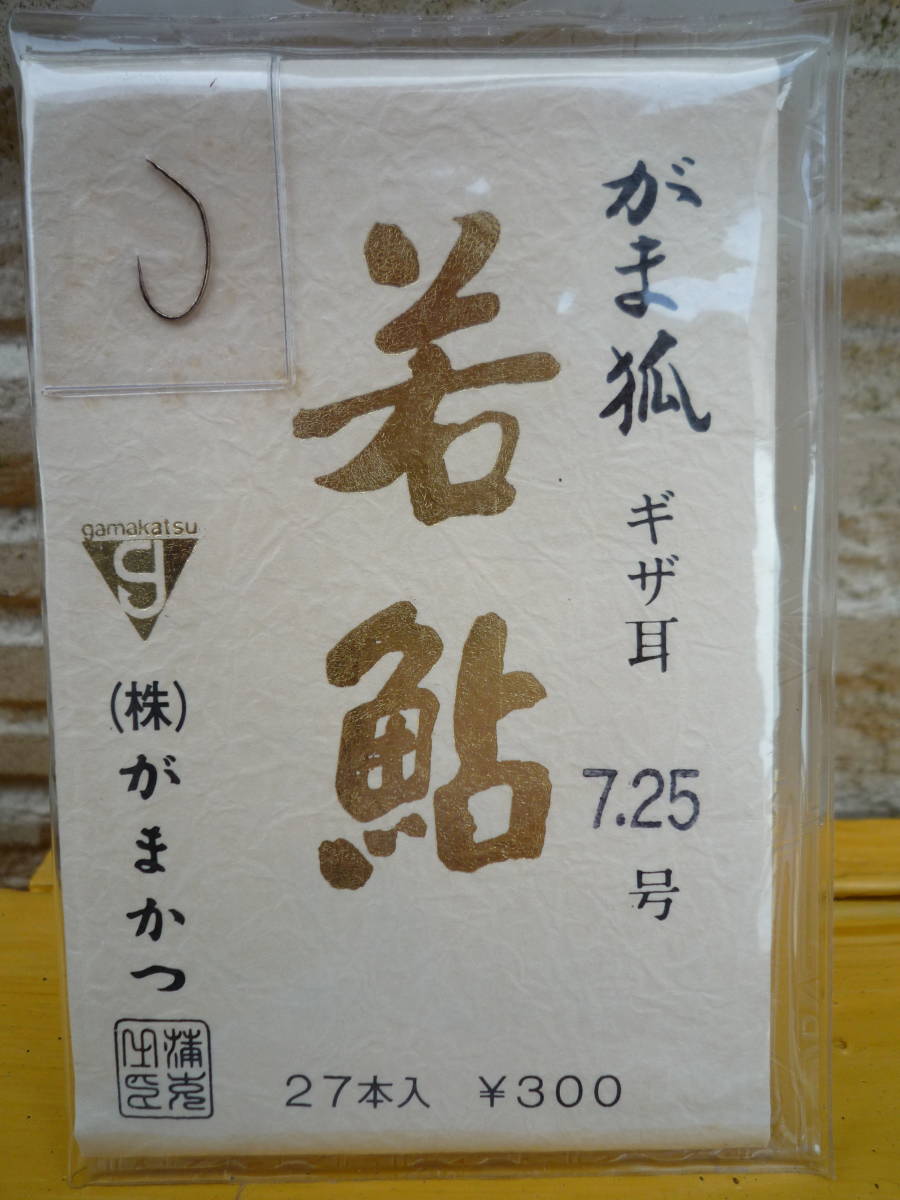 がま狐 ギザ耳 7.25号
若鮎
gamakatsu
g
(株)がまかつ
27本入 ¥300